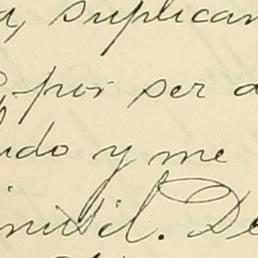 a, suplican
por ser a
udo y me
inutil. De